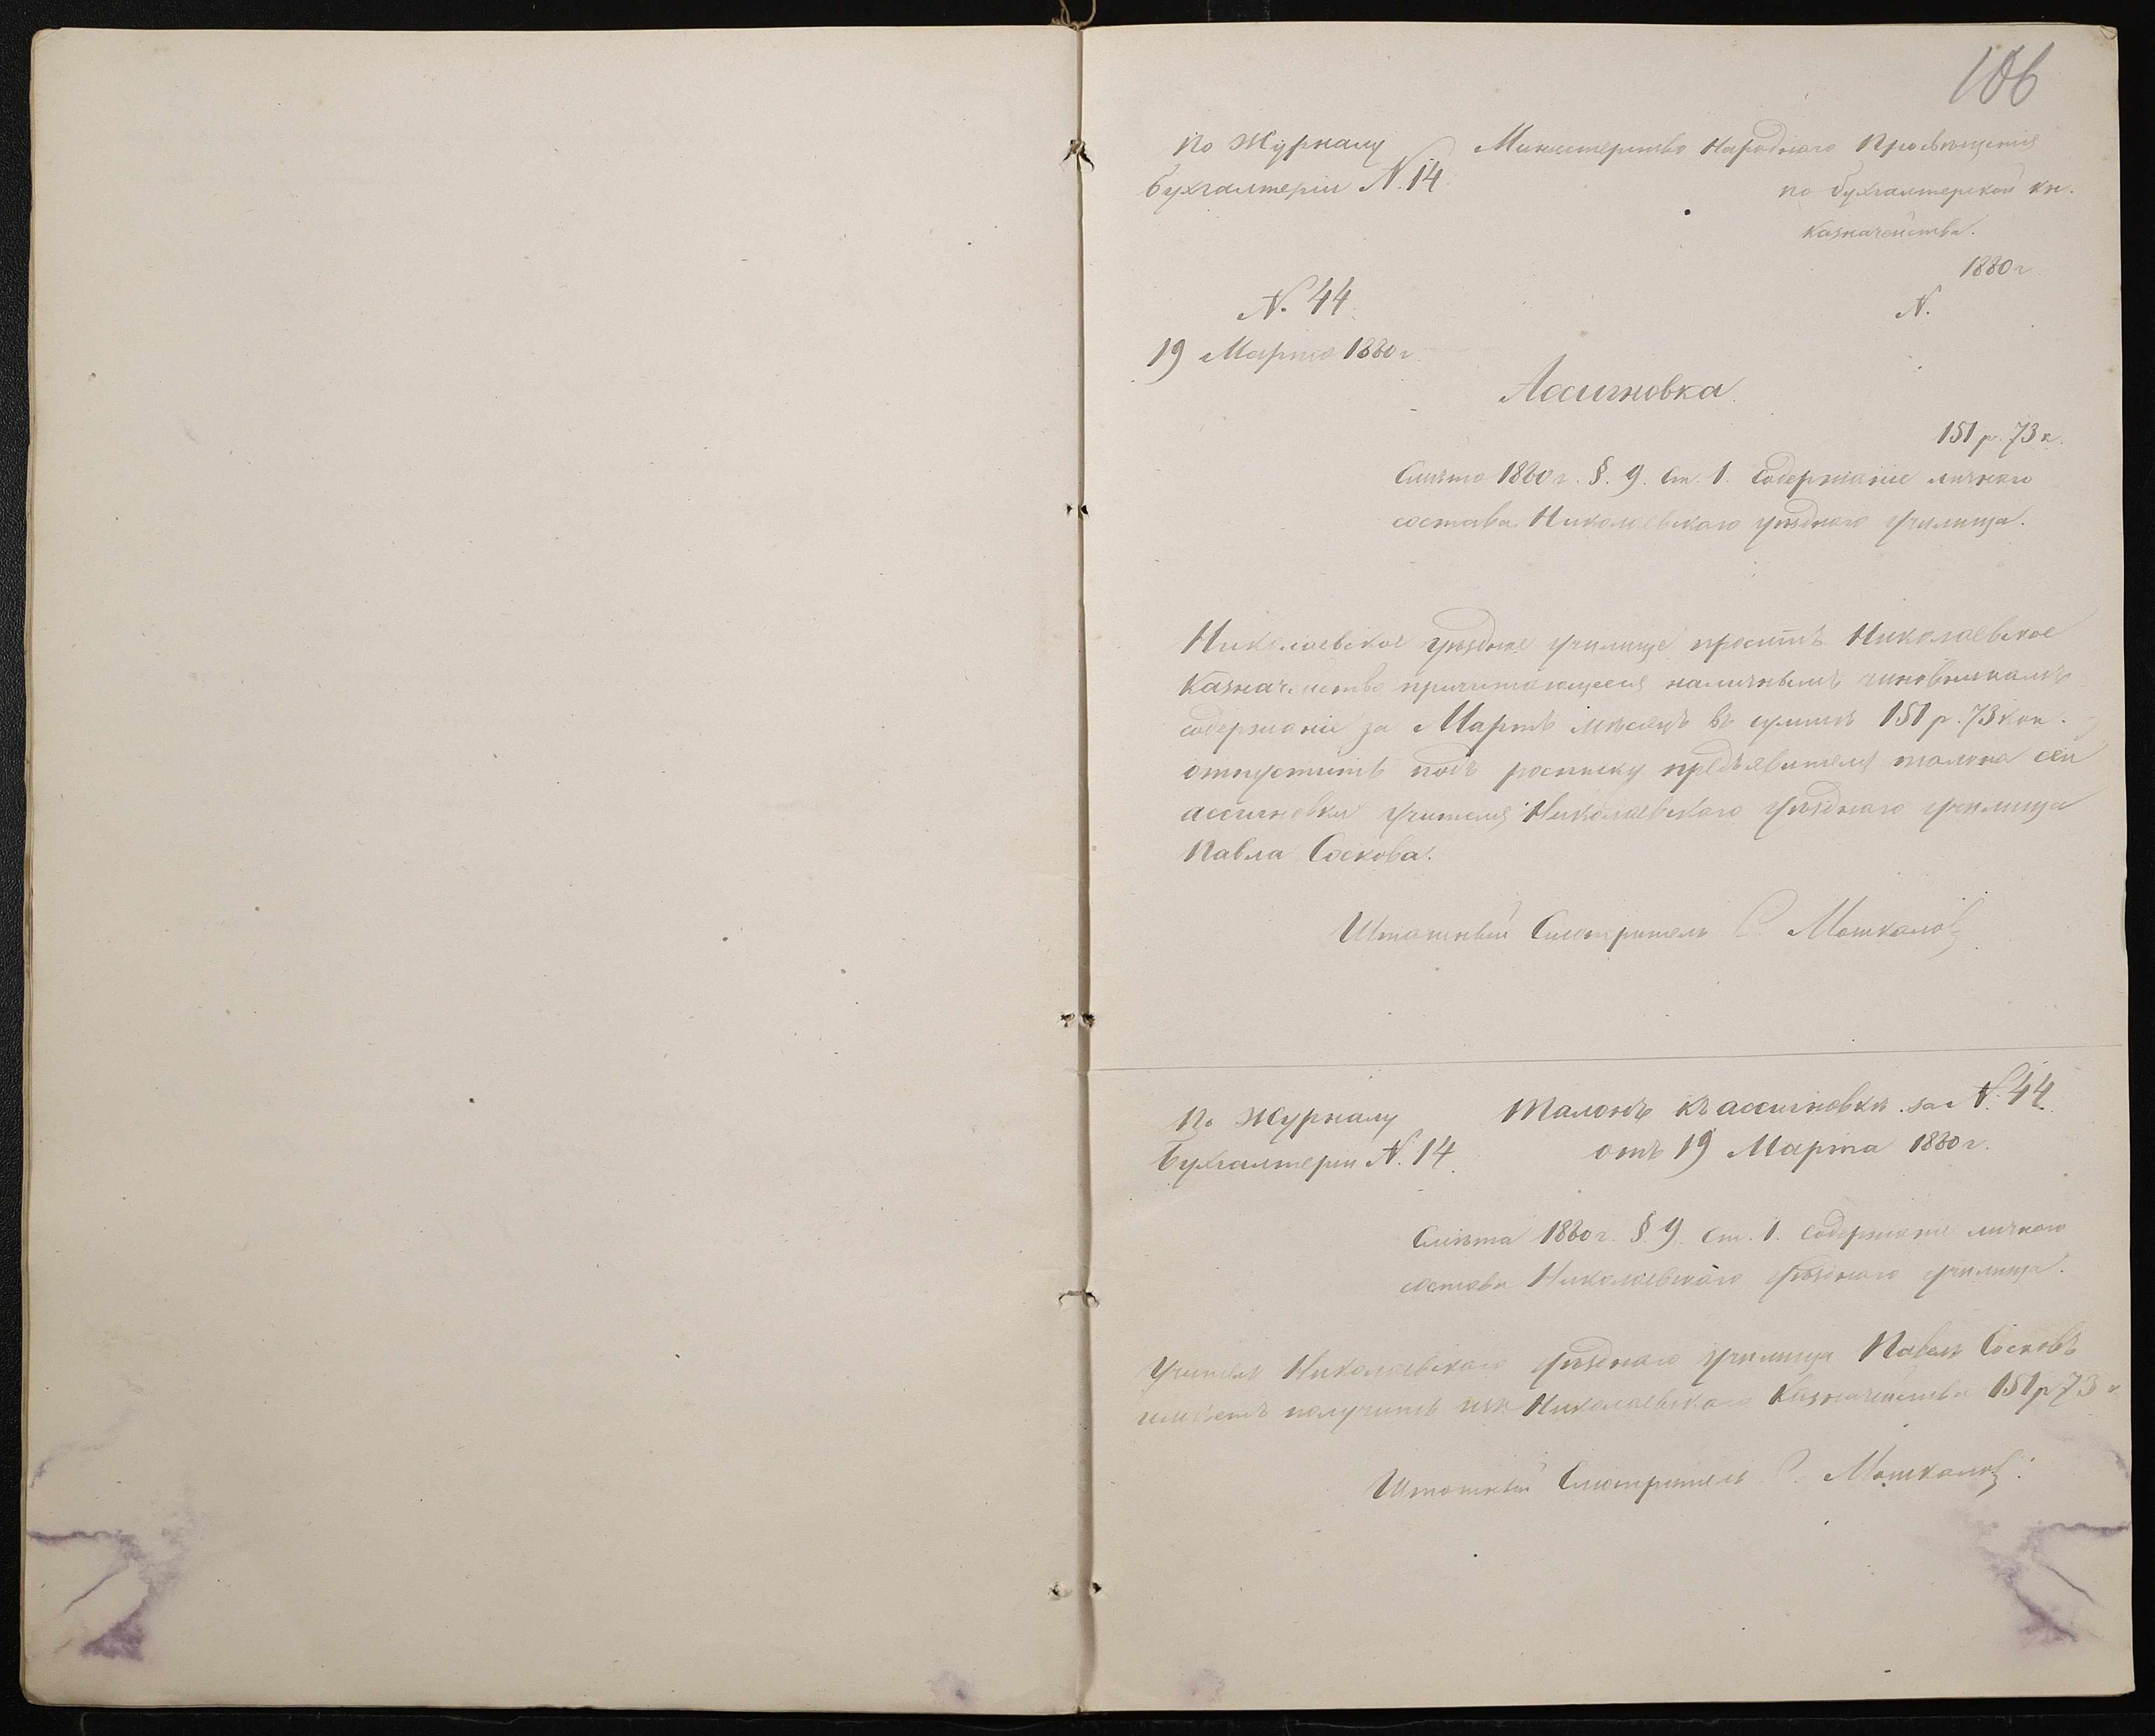 106
По Журналу
бухгалтеріи N. 14
Министерство Народнаго Просвѣщенія
по бухгалтерской кн.
Казначейства.
1880 г.
N. 44
N.
19 Марта 1880 г.
Ассигновка
151 р. 73 к.
Смѣта 1880 г. §. 9. Ст. 1. Содержаніе личнаго
состава Николаевскаго уѣзднаго училища.
Николаевское уѣздное училище проситъ Николаевское
Казначейство причитающееся наличнымъ чиновникамъ
содержаніе за Мартъ мѣсяцъ въ суммѣ 151 р. 73 коп.
отпустить подъ росписку предъявителя талона сей
ассигновки учителя Николаевскаго уѣзднаго училища
Павла Соскова.
Штатный Смотритель С. Машкалов
По Журналу
бухгалтеріи N. 14
Талонъ къ ассигновкѣ за N. 44
отъ 19 Марта 1880 г.
Смѣта 1880 г. §. 9. Ст. 1. Содержаніе личнаго
состава Николаевскаго уѣзднаго училища.
Учитель Николаевскаго уѣзднаго училища Павелъ Сосковъ
имѣетъ получить изъ Николаевскаго Казначейства 151 р 73 к
Штатный Смотритель С. Машкалов